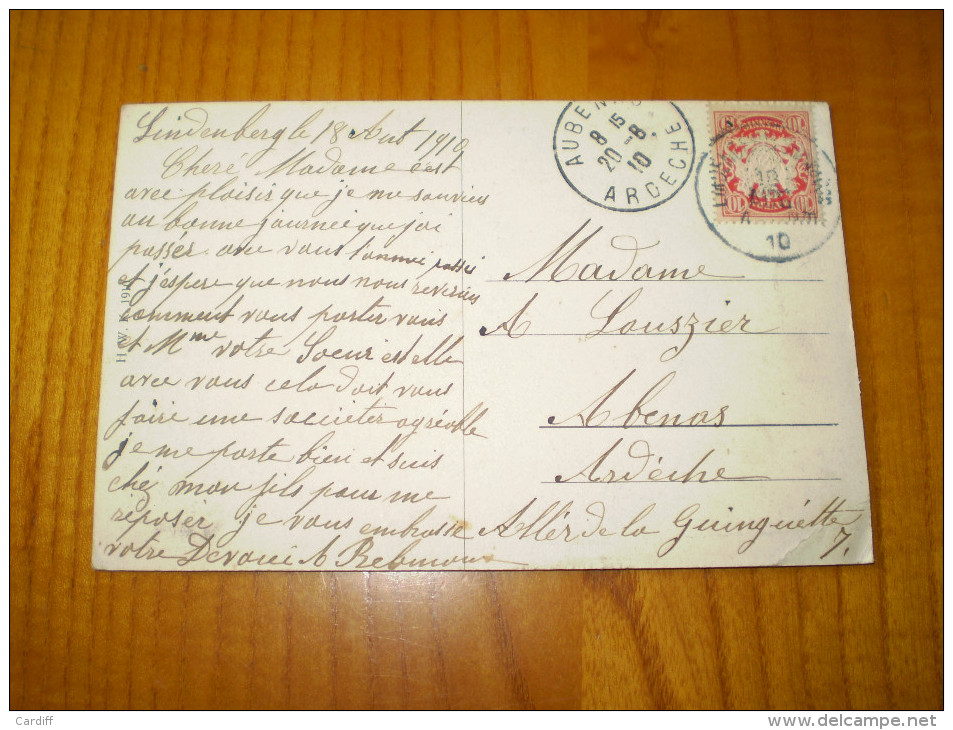 Lindenberg le 18 Aut 1910
Cheré Madame c'est
avec plaisir que je me souvien
au bonne journeé que j'ai
passér avec vous l'anneé passéi
et j'espere que nous nous reverens
Comment vous porter vous
et Mme votre Soeur est elle
avec vous cela doit vous
faire une societér agréable
je me porte bien et suis
ché mon fils pour me
réposér je vous embrasse
votre Devoueé A
H. W. K.
AUBENAS
8 15
20 -8
10
ARDECHE
10
Madame
A Louszier
Abenas
Ardèche
Allér de la Guinguètte
7.
Cardiff
www.delcampe.net